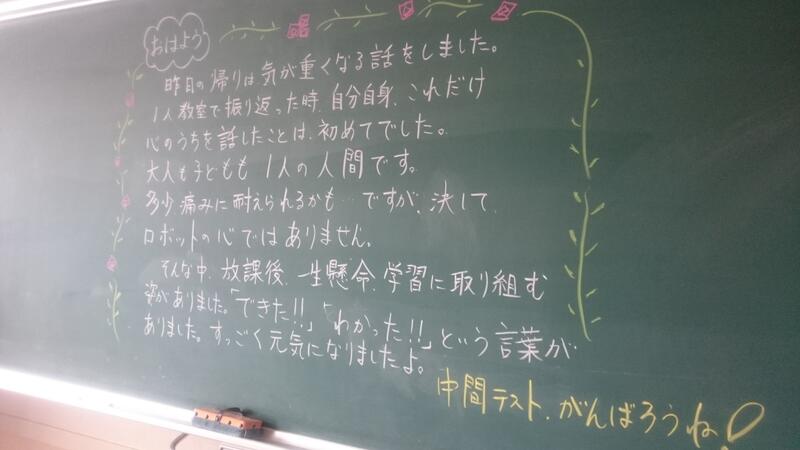 おはよう
昨日の帰りは気が重くなる話をしました。
1人教室で振り返った時、自分自身、これだけ
心のうちを話したことは、初めてでした。
大人も子どもも1人の人間です。
多少、痛みに耐えられるかも…ですが、決して、
ロボットの心ではありません。
そんな中、放課後、一生懸命、学習に取り組む
姿がありました。「できた!!」「わかった!!」という言葉が
ありました。すっごく元気になりましたよ。
中間テスト、がんばろうね!